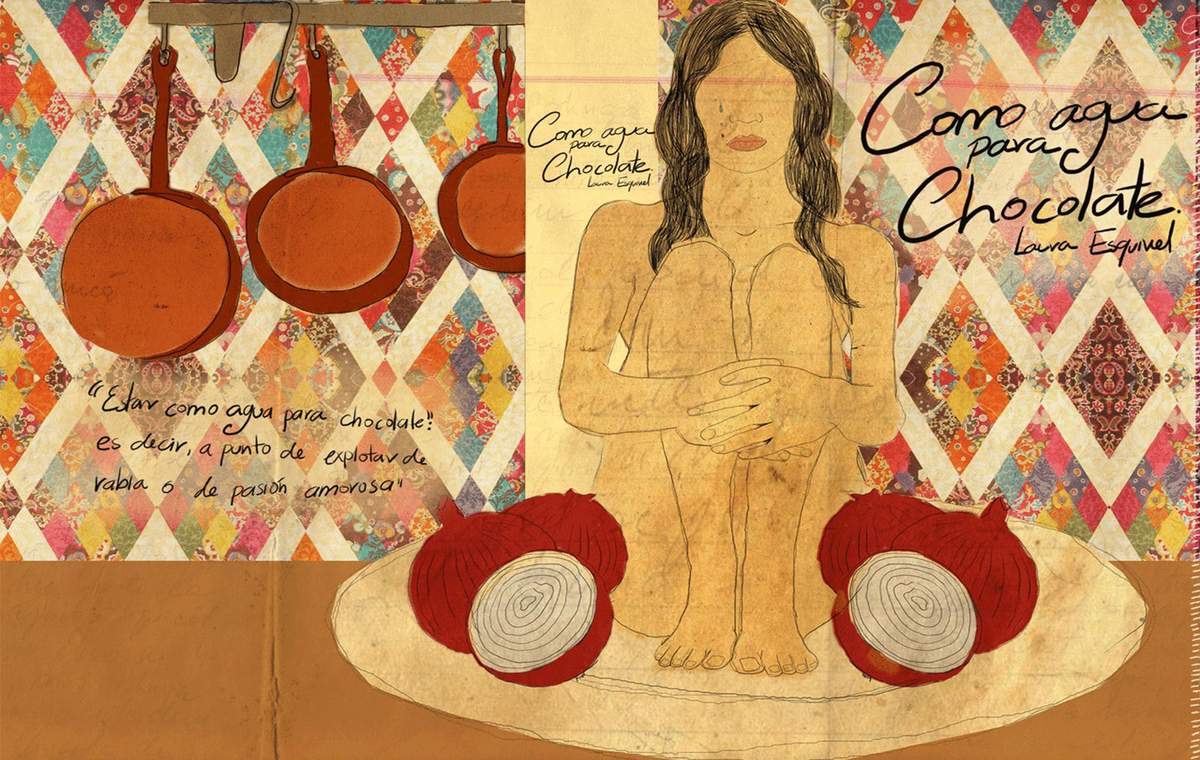 "Estar como agua para chocolate"
es decir, a punto de explotar de
rabia o de pasión amorosa"
Como agua
para
Chocolate.
Laura Esquivel
Como agua
para
Chocolate.
Laura Esquivel